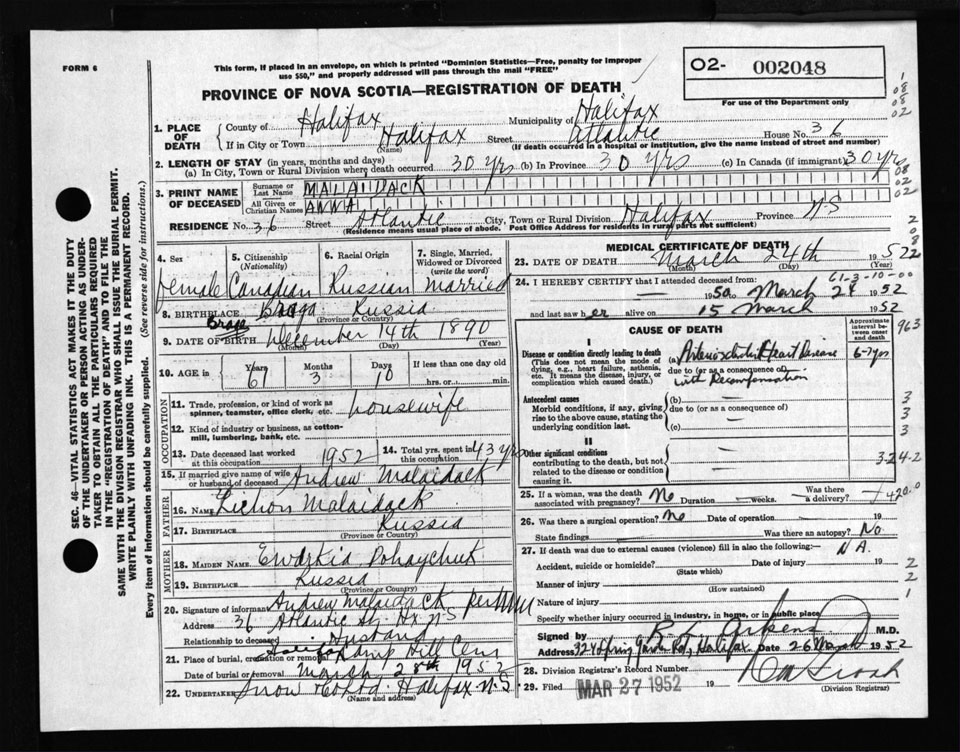 FORM 6
This form, if placed in an envelope, on which is printed "Dominion Statistics—Free, penalty for improper
use $50," and properly addressed will pass through the mail "FREE"
O2- 002048
For use of the Department only
PROVINCE OF NOVA SCOTIA—REGISTRATION OF DEATH
1. PLACE OF DEATH
County of Halifax Municipality of Halifax
If in City or Town Halifax Street Atlantic House No. 36
(Name) (If death occurred in a hospital or institution, give the name instead of street and number)
2. LENGTH OF STAY (in years, months and days)
(a) In City, Town or Rural Division where death occurred 30 yrs (b) In Province 30 yrs (c) In Canada (if immigrant) 30 yrs
3. PRINT NAME OF DECEASED
Surname or Last Name MALAIDACK
All Given or Christian Names ANNA
RESIDENCE No. 36 Street Atlantic City, Town or Rural Division Halifax Province N-S
(Residence means usual place of abode. Post Office Address for residents in rural parts not sufficient)
4. Sex Female
5. Citizenship (Nationality) Canadian
6. Racial Origin Russian
7. Single, Married, Widowed or Divorced (write the word) married
8. BIRTHPLACE Braga Russia
(Province or Country)
9. DATE OF BIRTH December 14th 1890
(Month) (Day) (Year)
10. AGE in Years 61 Months 3 Days 10 If less than one day old
hrs. or min.
OCCUPATION
11. Trade, profession, or kind of work as
spinner, teamster, office clerk, etc. housewife
12. Kind of industry or business, as cotton-
mill, lumbering, bank, etc.
13. Date deceased last worked
at this occupation 1952
14. Total yrs. spent in
this occupation 43 yrs
15. If married give name of wife
or husband of deceased Andrew Malaidack
FATHER
16. NAME Malaidack
17. BIRTHPLACE Russia
(Province or Country)
MOTHER
18. MAIDEN NAME Dohaychuk
19. BIRTHPLACE Russia
(Province or Country)
20. Signature of informant Andrew Malaidack per
Address 36 Atlantic St. Hx N S
Relationship to deceased Husband
21. Place of burial, cremation or removal Halifax Camp Hill Cem
Date of burial or removal March 28th 1952
22. UNDERTAKER Snow & Co Ltd. Halifax N.S
(Name and address)
MEDICAL CERTIFICATE OF DEATH
23. DATE OF DEATH March 24th 1952
(Month) (Day) (Year)
61-3-10-00
24. I HEREBY CERTIFY that I attended deceased from:
1950 to March 24 1952
and last saw her alive on 15 March 1952
CAUSE OF DEATH
Approximate interval between onset and death
I
Disease or condition directly leading to death
(This does not mean the mode of dying, e.g., heart failure, asthenia, etc. It means the disease, injury, or complication which caused death.)
(a) Arteriosclerotic Heart Disease 6-7 yrs
due to (or as a consequence of)
with Decompensation
Antecedent causes
Morbid conditions, if any, giving rise to the above cause, stating the underlying condition last.
(b) —
due to (or as a consequence of)
(c) —
II
Other significant conditions
contributing to the death, but not related to the disease or condition causing it.
963
3
3
3
3-24-2
25. If a woman, was the death
associated with pregnancy? No Duration — weeks. Was there a delivery? —
420.0
26. Was there a surgical operation? No Date of operation —
State findings — Was there an autopsy? No
27. If death was due to external causes (violence) fill in also the following:— N A.
Accident, suicide or homicide? Date of injury
(State which)
Manner of injury
(How sustained)
Nature of injury
Specify whether injury occurred in industry, in home, or in public place
Signed by M.D.
Address 324 Spring Garden Rd, Halifax. Date 26 March 1952
28. Division Registrar's Record Number
29. Filed MAR 27 1952 19
(Division Registrar)
SEC. 46—VITAL STATISTICS ACT MAKES IT THE DUTY
OF THE UNDERTAKER OR PERSON ACTING AS UNDER-
TAKER TO OBTAIN ALL THE PARTICULARS REQUIRED
IN THE "REGISTRATION OF DEATH" AND TO FILE THE
SAME WITH THE DIVISION REGISTRAR WHO SHALL ISSUE THE BURIAL PERMIT.
WRITE PLAINLY WITH UNFADING INK. THIS IS A PERMANENT RECORD.
Every item of information should be carefully supplied. (See reverse side for instructions.)